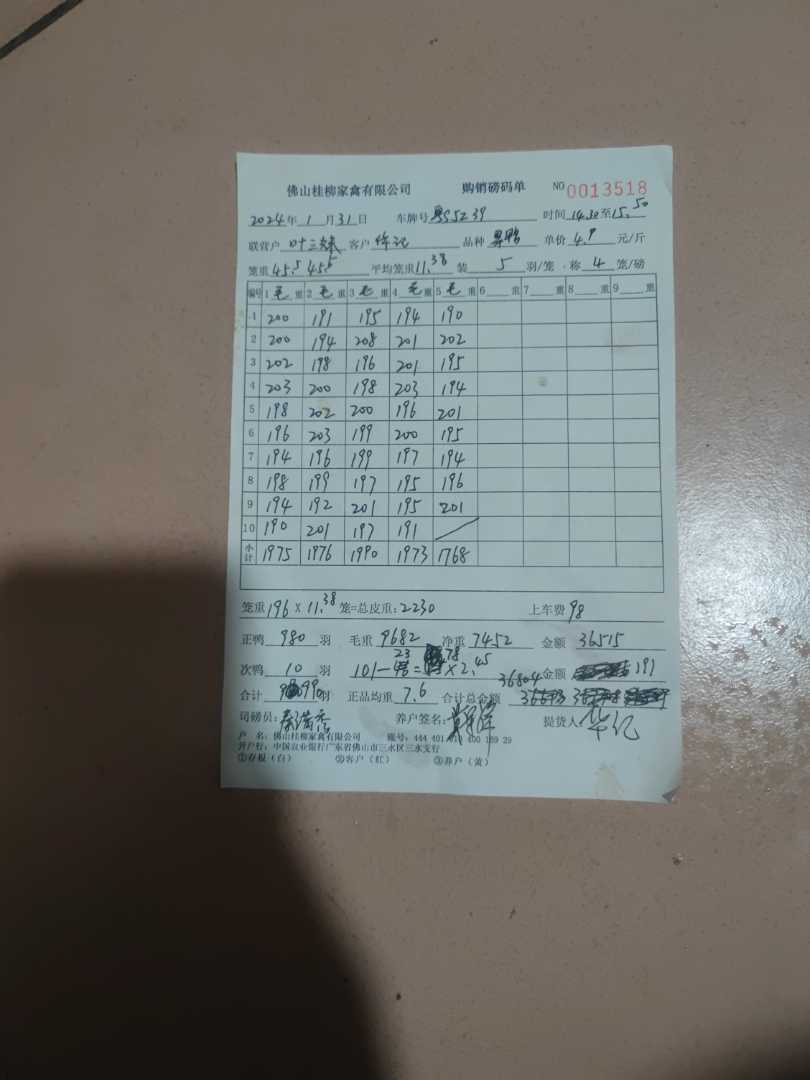 佛山桂柳家禽有限公司 购销磅码单 NO 0013518
2024年 1月 31日 车牌号 粤S5239 时间 14.30至15.50
联营户 叶三 客户 徐记 品种 鸭 单价 4.9 元/斤
笼重 45.5 45.5 平均笼重 11.38 装 5 羽/笼·称 4 笼/磅
编号 1 毛 重 2 毛 重 3 毛 重 4 毛 重 5 毛 重 6 重 7 重 8 重 9 重
1 200 191 195 194 190
2 200 194 208 201 202
3 202 198 196 201 195
4 203 200 198 203 194
5 198 202 200 196 201
6 196 203 199 200 195
7 194 196 199 197 194
8 198 199 197 195 196
9 194 192 201 195 201
10 190 201 197 191
小计 1975 1976 1990 1973 1768
笼重 196 X 11.38 笼=总皮重: 2230 上车费 98
正鸭 980 羽 毛重 9682 净重 7452 金额 36515
次鸭 10 羽 101-23=78×2.45 金额 191
合计 990 羽 正品均重 7.6 合计总金额 36804
司磅员: 养户签名: 提货人:
户 名: 佛山桂柳家禽有限公司 账号: 444 401 400 169 29
开户行: 中国农业银行广东省佛山市三水区三水支行
①存根（白） ②客户（红） ③养户（黄）